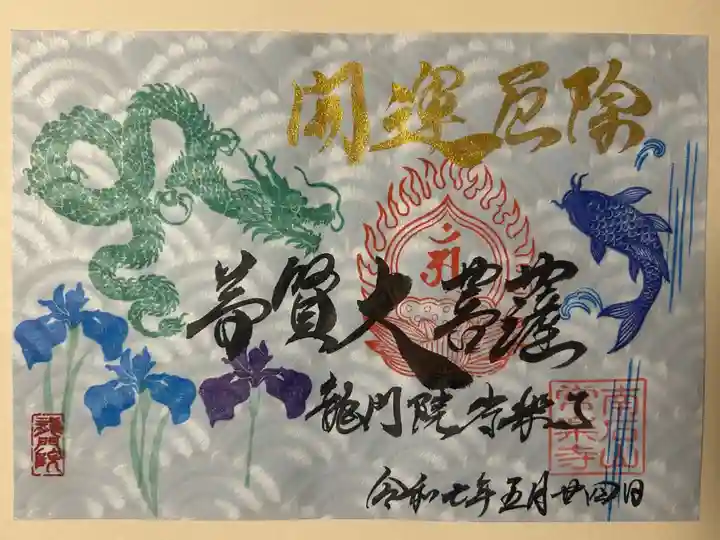 開運厄除
普賢大菩薩
龍門院 常楽寺
令和七年五月廿四日
南岳山
常楽寺
龍門院